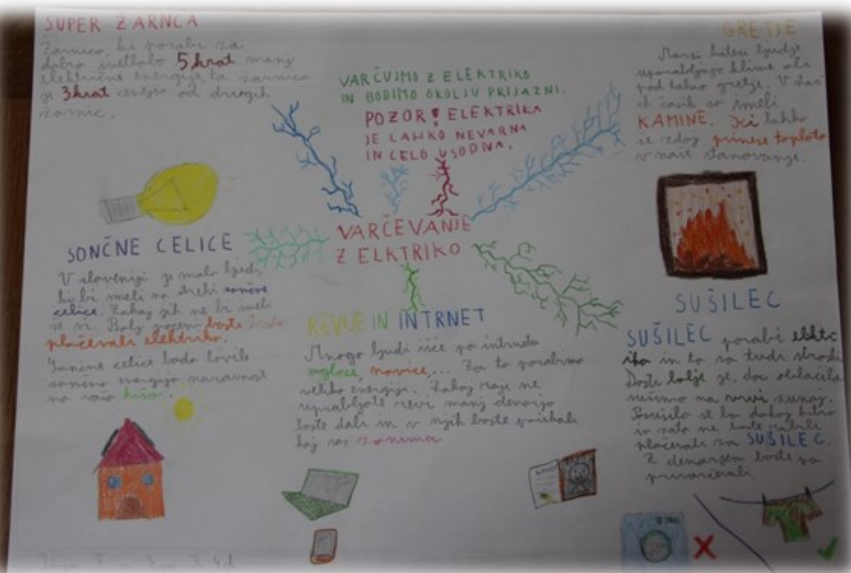 SUPER ŽARNCA
Žarnica, ki porabi za
dobro svetlobo 5 krat manj
električne energije, ta žarnica
je 3krat cenejša od drugih
žarnic.
VARČUJMO Z ELEKTRIKO
IN BODIMO OKOLJU PRIJAZNI.
POZOR! ELEKTRIKA
JE LAHKO NEVARNA
IN CELO USODNA.
GRETJE
ljudje
uporabljajo klime ali
pod talno gretje. V
ih časih so imeli
KAMINE. Ki lahko
se zdaj prinese toploto
v naše stanovanje.
VARČEVANJE
Z ELKTRIKO
SONČNE CELICE
V sloveniji je malo ljudi,
ki bi imeli na strehi sončne
celice. Zakaj jih ne bi imeli
še vi. Bolj poceni boste
plačevali elektriko.
Sončne celice bodo lovile
sončno energijo naravnost
na vašo hišo.
REVIJE IN INTRNET
Mnogo ljudi išče po intrnetu
oglase, novice,... Za to porabimo
veliko energije. Zakaj raje ne
revij manj denarja
boste dali in v njih boste poiskali
kaj vas zanima
SUŠILEC
SUŠILEC porabi elktr
iko in to so tudi stroški
Dosti bolje je, da oblačila
sušimo na vrvi zunaj.
Posušilo se bo dokaj hitro
in zato ne boste rabili
plačevati za SUŠILEC.
Z denarjem boste pa
privarčevali.